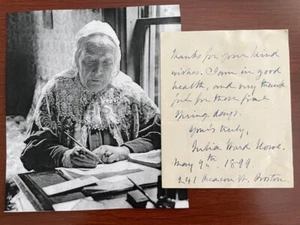 Thanks for your kind
wishes. I am in good
health, and very thank
ful for these first
Spring days.
Yours truly,
Julia Ward Howe.
May 9th 1899
241 Beacon St. Boston.